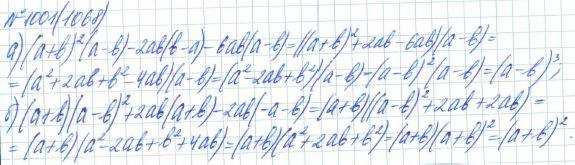 №1001(1068)
а) (a+b)²(a-b)-2ab(b-a)-6ab(a-b)=((a+b)²+2ab-6ab)(a-b)=
=(a²+2ab+b²-4ab)(a-b)=(a²-2ab+b²)(a-b)=(a-b)²(a-b)=(a-b)³;
б) (a+b)(a-b)²+2ab(a+b)-2ab(-a-b)=(a+b)((a-b)²+2ab+2ab)=
=(a+b)(a²-2ab+b²+4ab)=(a+b)(a²+2ab+b²)=(a+b)(a+b)²=(a+b)².